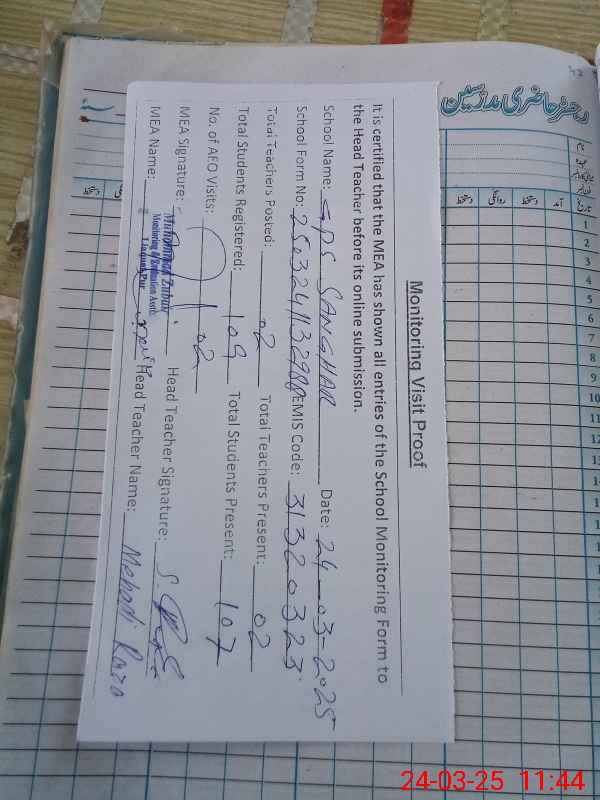 Monitoring Visit Proof
It is certified that the MEA has shown all entries of the School Monitoring Form to
the Head Teacher before its online submission.
School Name: GPS SANGHAR Date: 24-03-2025
School Form No: EMIS Code: 31320323
Total Teachers Posted: 02 Total Teachers Present: 02
Total Students Registered: 109 Total Students Present: 107
No. of AEO Visits: 02
MEA Signature: Head Teacher Signature:
MEA Name: Muhammad Zubair Head Teacher Name: Mehadi Raza
Monitoring & Evaluation Asstt:
Liaquat Pur
رجسٹر حاضری مدرسین
نام
تاریخ آمد دستخط روانگی دستخط
1
2
3
4
5
6
7
8
9
10
11
12
13
14
24-03-25 11:44